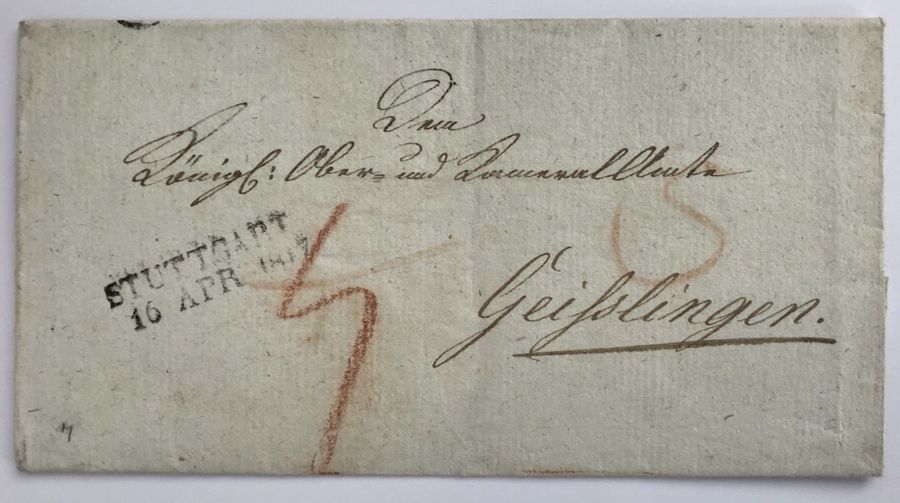 Dem
Königl: Ober= und KameralAmte
STUTTGART
16 APR 1817
Geisslingen.